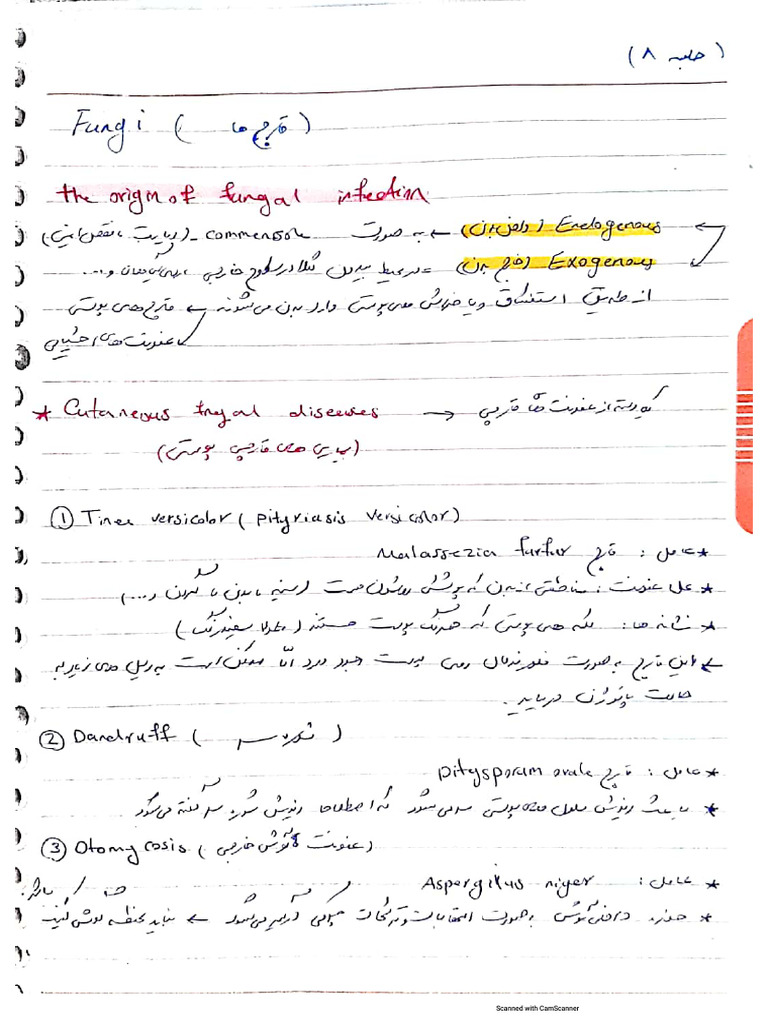 (جلسه ۸)
Fungi ( قارچ ها )
the origin of fungal infection
Endogenous (داخل بدن) ← به صورت commensale - (دیابت، نقص ایمنی)
Exogenous (خارج بدن) = در محیط بیرون مثلا در سطوح خارجی و...
از طریق استنشاق و یا خراش های پوستی وارد بدن می شوند ← قارچ های پوستی
عفونت های احشایی
* Cutaneous fungal diseases → که دسته از عفونت های قارچی
(بیماری های قارچی پوستی)
① Tinea versicolor ( pityriasis versicolor)
* عامل : قارچ Malassezia furfur
* محل عفونت : مناطقی از بدن که پوشش روشون هست (سینه یا بدن یا گردن و...)
* نشانه ها : لکه های پوستی که همرنگ پوست هستند ( سفید رنگ)
← این قارچ به صورت فلور نرمال روی پوست وجود دارد امّا ممکن است به دلیل های زیاد به
حالت پاتوژن دربیاید.
② Dandruff ( شوره سر )
* عامل : قارچ Pitysporum ovale
* باعث ریزش سلول های پوستی سر می شود که اصطلاحا ریزش شوره سر گفته می شود
③ Otomycosis ( عفونت گوش خارجی )
* عامل : Aspergillus niger
* داخلی گوش به صورت التهابات و ترشحات چرکی می شود ← نباید گوش
Scanned with CamScanner